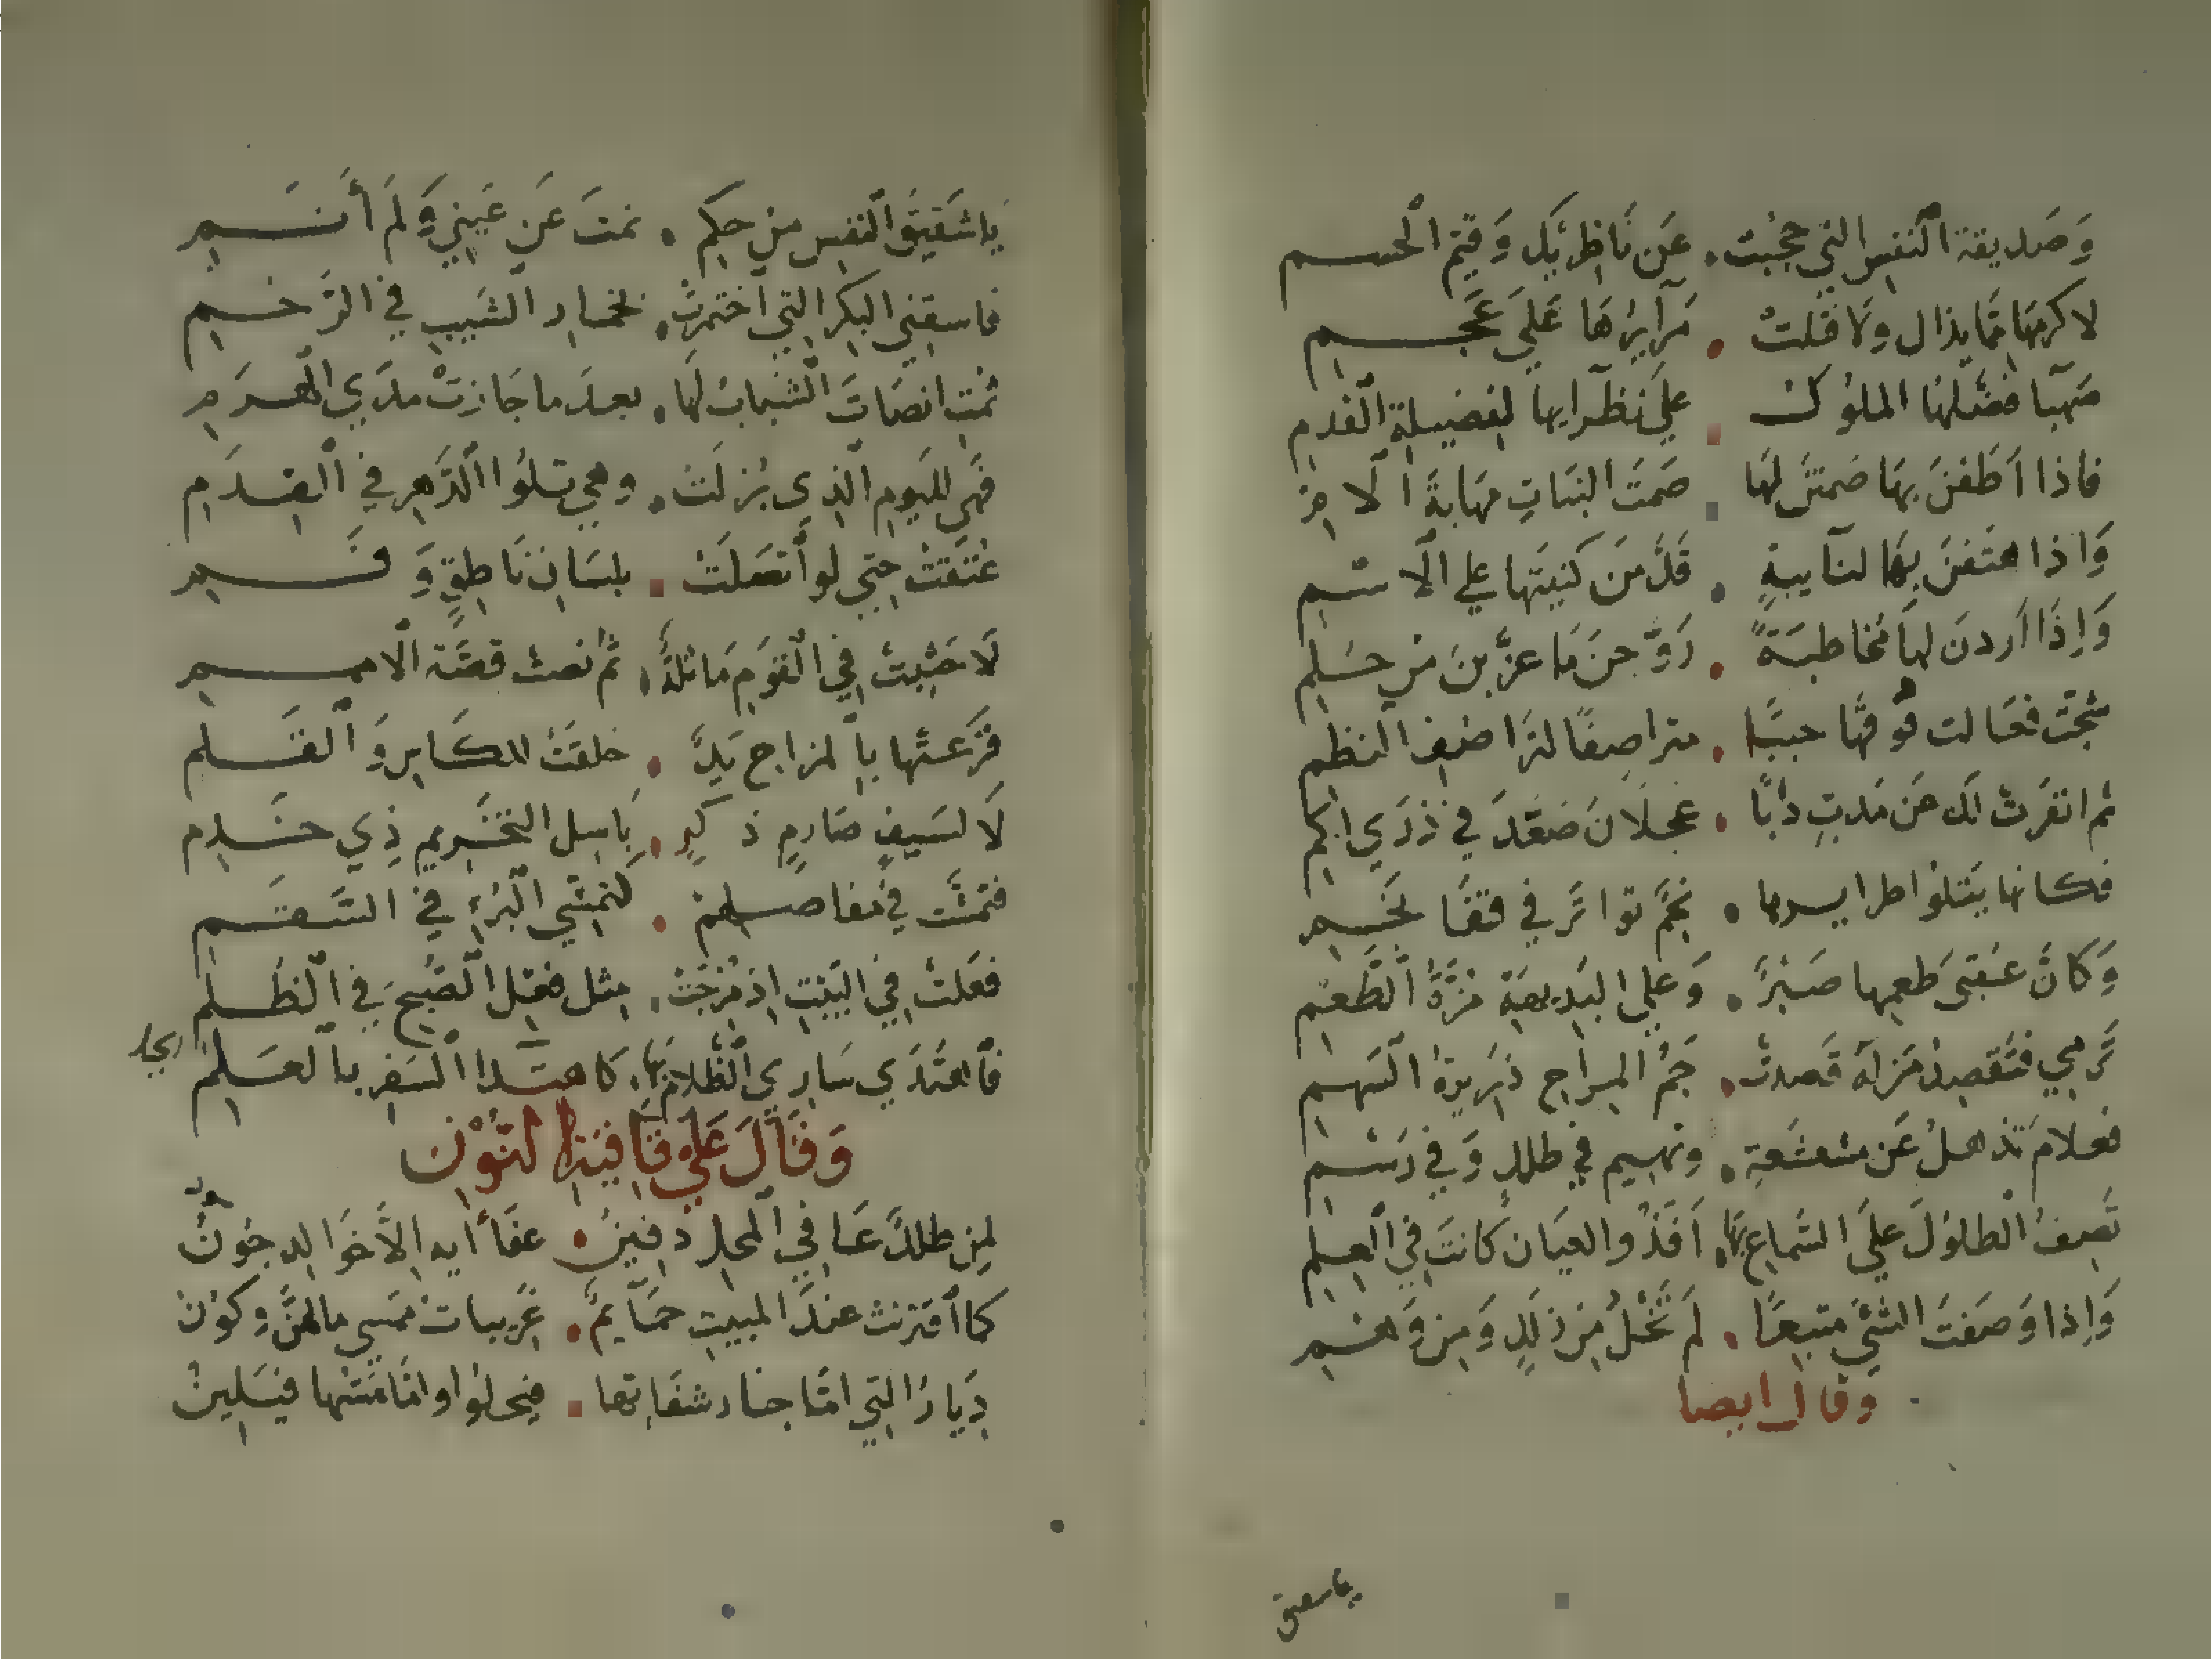 وَصَديقة النفس التي حجُبت . عَن نَاظِريَك وَقيّم الحسم
لا كرمها مما يذال ولا فتلت . مرآيرها عَلي عجم
صَهبا فضّلها الملوك . علي نظرايها لفضيلة القدم
فاذا اطفنَ بهَا صَمتن لهَا . صَمتَ البنات مهابةَ الام
وَاذا هتفن بها لنآيبةٍ . قدّمن كنيتها علي الاسم
وَاِذَا اَردنَ لهَا مخاطبَةً . رَوّجن مَا عزّبن من حلم
شجّت فعَالت فوقها حببًا . متراصِفًا لتراصف النظم
ثم انفرت لك عن مَدبّ دبًا . عجلَان صَعّدَ في ذرَي اكم
فكانها يتلوا طرايدها . نجمٌ تواترَ في قفا نجم
وَكانّ عقبىَ طعمها صَبْرٌ . وَعلي البَديهة مُزّةُ الطّعم
تَرمي فتَقصِدُ مَن لَه قَصدت . جَمُّ المِراح دَريرةُ السَهم
فعلامَ تذهلُ عَن مشعشعةٍ . وتهيم في طللٍ وَفي رَسم
تَصِفُ الطلوُلَ علَي السَماع بهَا . اَفَذُو العيَان كانتَ في العِلم
وَاِذا وَصَفتَ الشئَ متبعًا . لَم تَخْلُ مِن زلَلٍ وَمِن وَهم
وقال ايضا
ياشقيق
يَاشَقيقَ النفس من حكم . نمتَ عَن عَيني وَلَم أنَم
فاسقني البكر التي اختمرتْ . بخمار الشَيب في الرَّحم
ثمّت انصَاتَ الشَبابُ لهَا . بعدَ ما جَازتْ مدَي الهَرم
فهَي لليَوم الذي بُزلَتْ . وهي تلوُا الدَّهر في القِدَم
عُتّقتْ حتي لو أتصَلَتْ . بلسَان نَاطقٍ وَفَم
لَاحتَبتْ في القوَم مَاثلةً . ثم نصت قصّة الامم
قرَعتْها بالمزاج يَدٌ . خلقَتْ للكاس وَالقَلم
لَا لسَيفٍ صَارمٍ ذكرٍ . باسِل التخديم ذِي حذم
فتمشّت في مفاصلهم . كتمشي البُرء في السَّقم
فعَلت في البَيت اِذ مُزجَتْ . مثل فعل الصُبح في الظُلم
فأهتَدَي سَاري الظَّلام بهَا . كاهتدا السَفر بالعَلم
وَقَالَ عَلي قافيَة النّوُن
لمِن طللٌ عَافي المحلِ دفينُ . عفَا أيه الاّ خوالد جوُنُ
كما أقترنت عندَ المبيت حمَايمٌ . غَريبات ممسي مالهنَّ وكوُن
دِيارُ التي امّا جنا رشفاتها . فيحلوُا وامّا مَسّها فيَلينُ